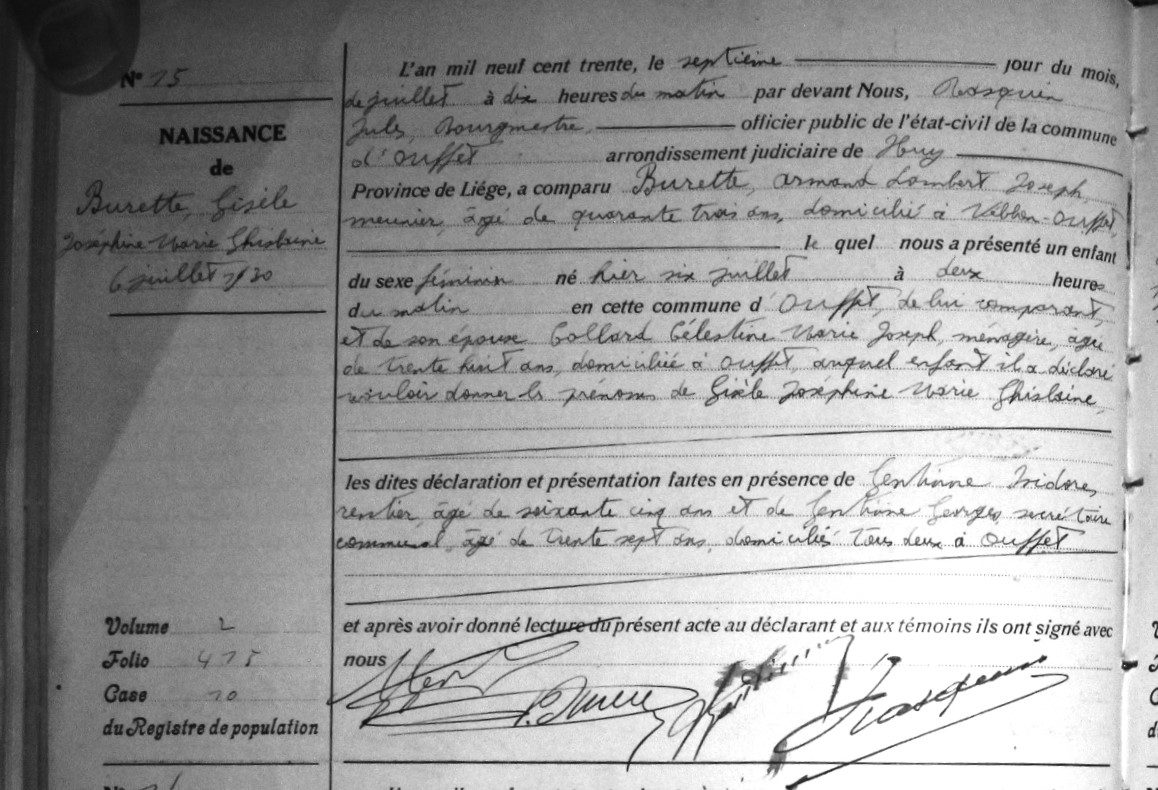 N° 15
NAISSANCE
de
Burette, Gisèle
Joséphine Marie Ghislaine
6 juillet 1930
Volume 2
Folio 415
Case 10
du Registre de population
L'an mil neuf cent trente, le septième jour du mois,
de juillet à dix heures du matin par devant Nous, Rasquin
Jules, Bourgmestre, officier public de l'état-civil de la commune
d'Ouffet arrondissement judiciaire de Huy
Province de Liége, a comparu Burette, Armand Lambert Joseph,
meunier, âgé de quarante trois ans, domicilié à Ouffet,
le quel nous a présenté un enfant
du sexe féminin né hier six juillet à deux heures
du matin en cette commune d'Ouffet, de lui comparant,
et de son épouse Collard Célestine Marie Joseph, ménagère, âgée
de trente huit ans, domiciliée à Ouffet, auquel enfant il a déclaré
vouloir donner les prénoms de Gisèle Joséphine Marie Ghislaine,
les dites déclaration et présentation faites en présence de Isidore,
rentier, âgé de soixante cinq ans et de Georges, secrétaire
communal, âgé de trente sept ans, domiciliés tous deux à Ouffet
et après avoir donné lecture du présent acte au déclarant et aux témoins ils ont signé avec
nous
Rasquin